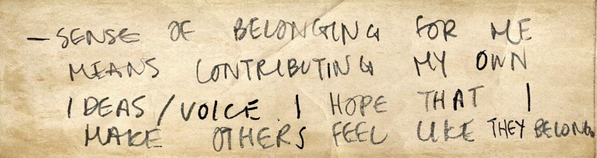 – SENSE OF BELONGING FOR ME
MEANS CONTRIBUTING MY OWN
IDEAS/VOICE I HOPE THAT I
MAKE OTHERS FEEL LIKE THEY BELONG